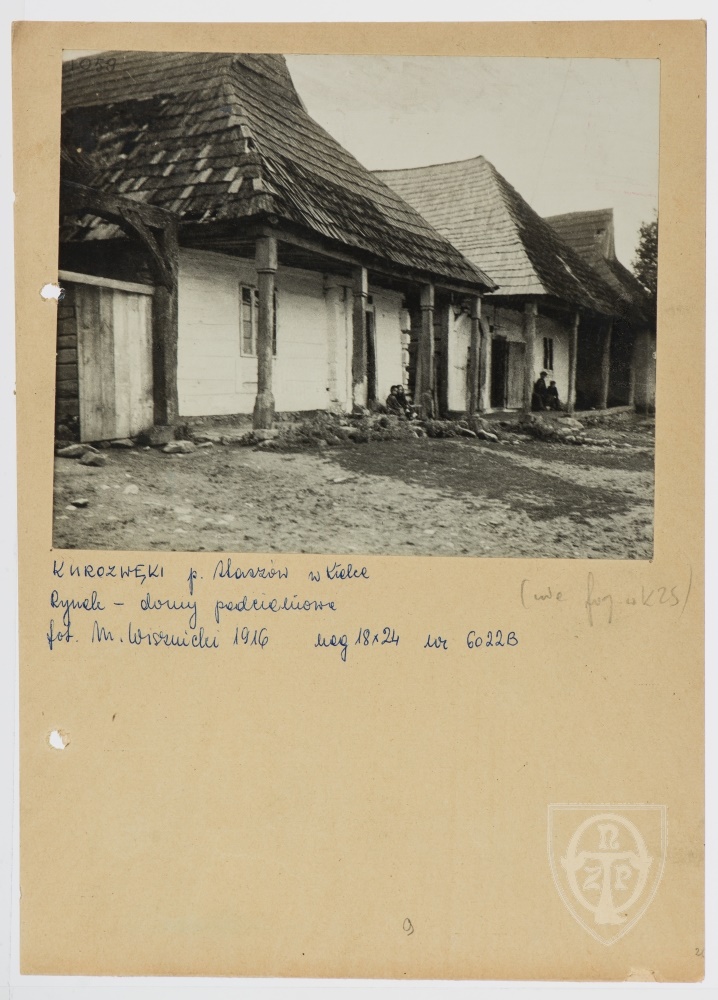 1039
KUROZWĘKI p. Staszów w Kielce
Rynek – domy podcieniowe
fot. M. Wisznicki 1916 neg 18x24 nr 6022B
(nie fig. w KZS)
9
TONZP